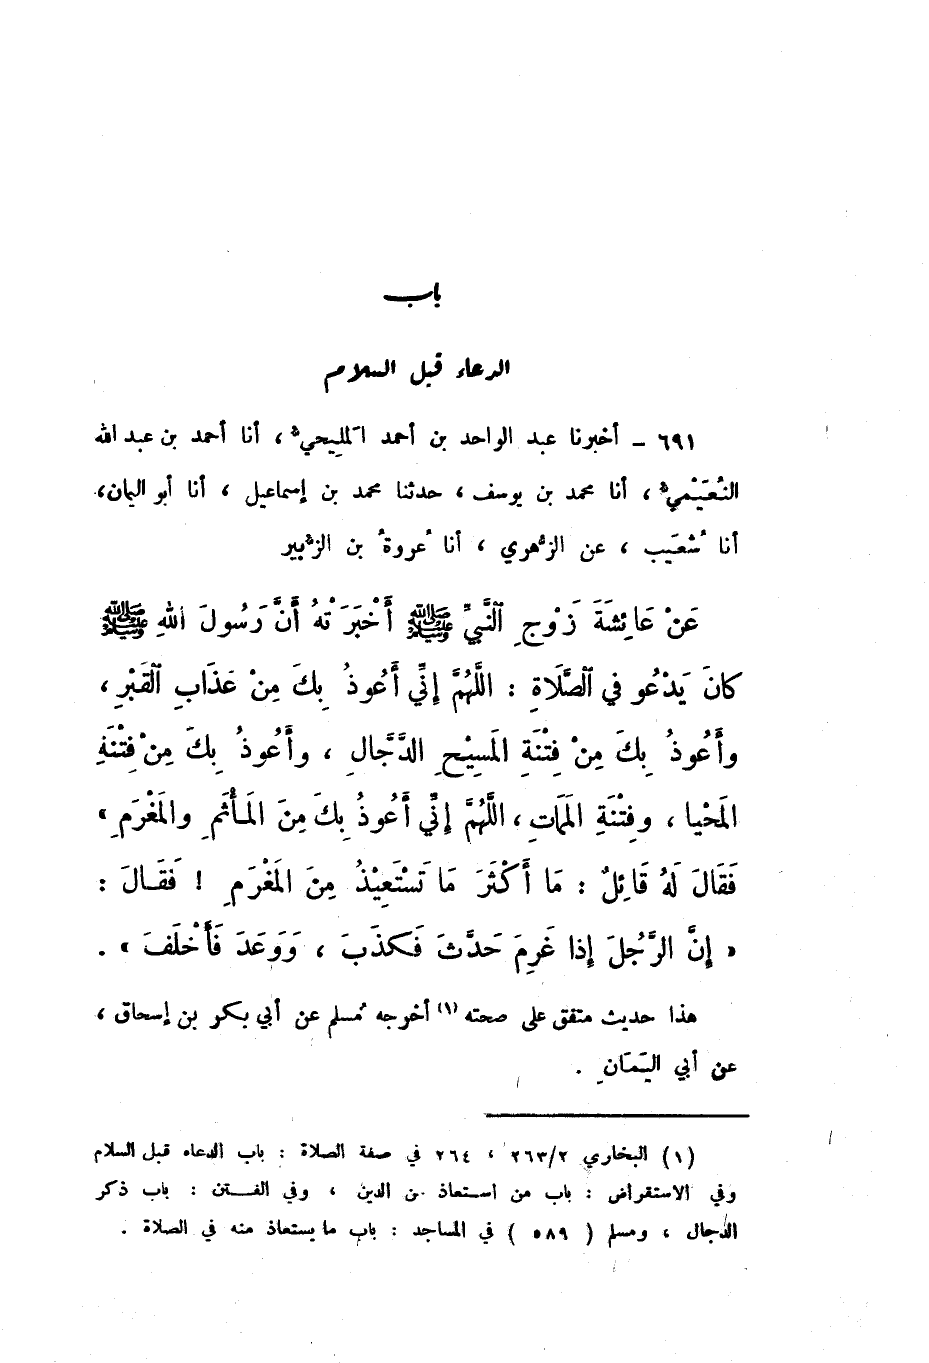 باب
الدعاء قبل السلام
٦٩١ – أخبرنا عبد الواحد بن أحمد المليحيُّ ، أنا أحمد بن عبد الله
النُّعَيْمِيُّ ، أنا محمد بن يوسف ، حدثنا محمد بن إسماعيل ، أنا أبو اليمان ،
أنا شُعَيب ، عن الزُّهوي ، أنا عُروةُ بن الزُّبير
عَنْ عَائِشَةَ زَوْجِ ٱلنَّبِيِّ ﷺ أَخْبَرَتْهُ أَنَّ رَسُولَ اللهِ ﷺ
كانَ يَدْعُو في ٱلصَّلَاةِ : اللَّهُمَّ إِنِّي أَعُوذُ بِكَ مِنْ عَذَابِ ٱلقَبْرِ ،
وأَعُوذُ بِكَ مِنْ فِتْنَةِ المَسِيْحِ الدَّجَّالِ ، وأَعُوذُ بِكَ مِنْ فِتْنَةِ
المَحْيا ، وفِتْنَةِ المَمَاتِ ، اللَّهُمَّ إِنِّي أَعُوذُ بِكَ مِنَ المَأْثَمِ والمَغْرَمِ »
فَقَالَ لَهُ قَائِلٌ : مَا أَكْثَرَ مَا تَسْتَعِيْذُ مِنَ المَغْرَمِ ! فَقَالَ :
« إِنَّ الرَّجُلَ إِذا غَرِمَ حَدَّثَ فَكَذَبَ ، وَوَعَدَ فَأَخْلَفَ » .
هذا حديث متفق على صحته (١) أخرجه مُسلم عن أبي بكر بن إسحاق ،
عن أبي اليَمَانِ .
(١) البخاري ٢/٢٦٣ ، ٢٦٤ في صفة الصلاة : باب الدعاء قبل السلام
وفي الاستقراض : باب من استعاذ من الدين ، وفي الفـتن : باب ذكر
الدجال ، ومسلم ( ٥٨٩ ) في المساجد : باب ما يستعاذ منه في الصلاة .